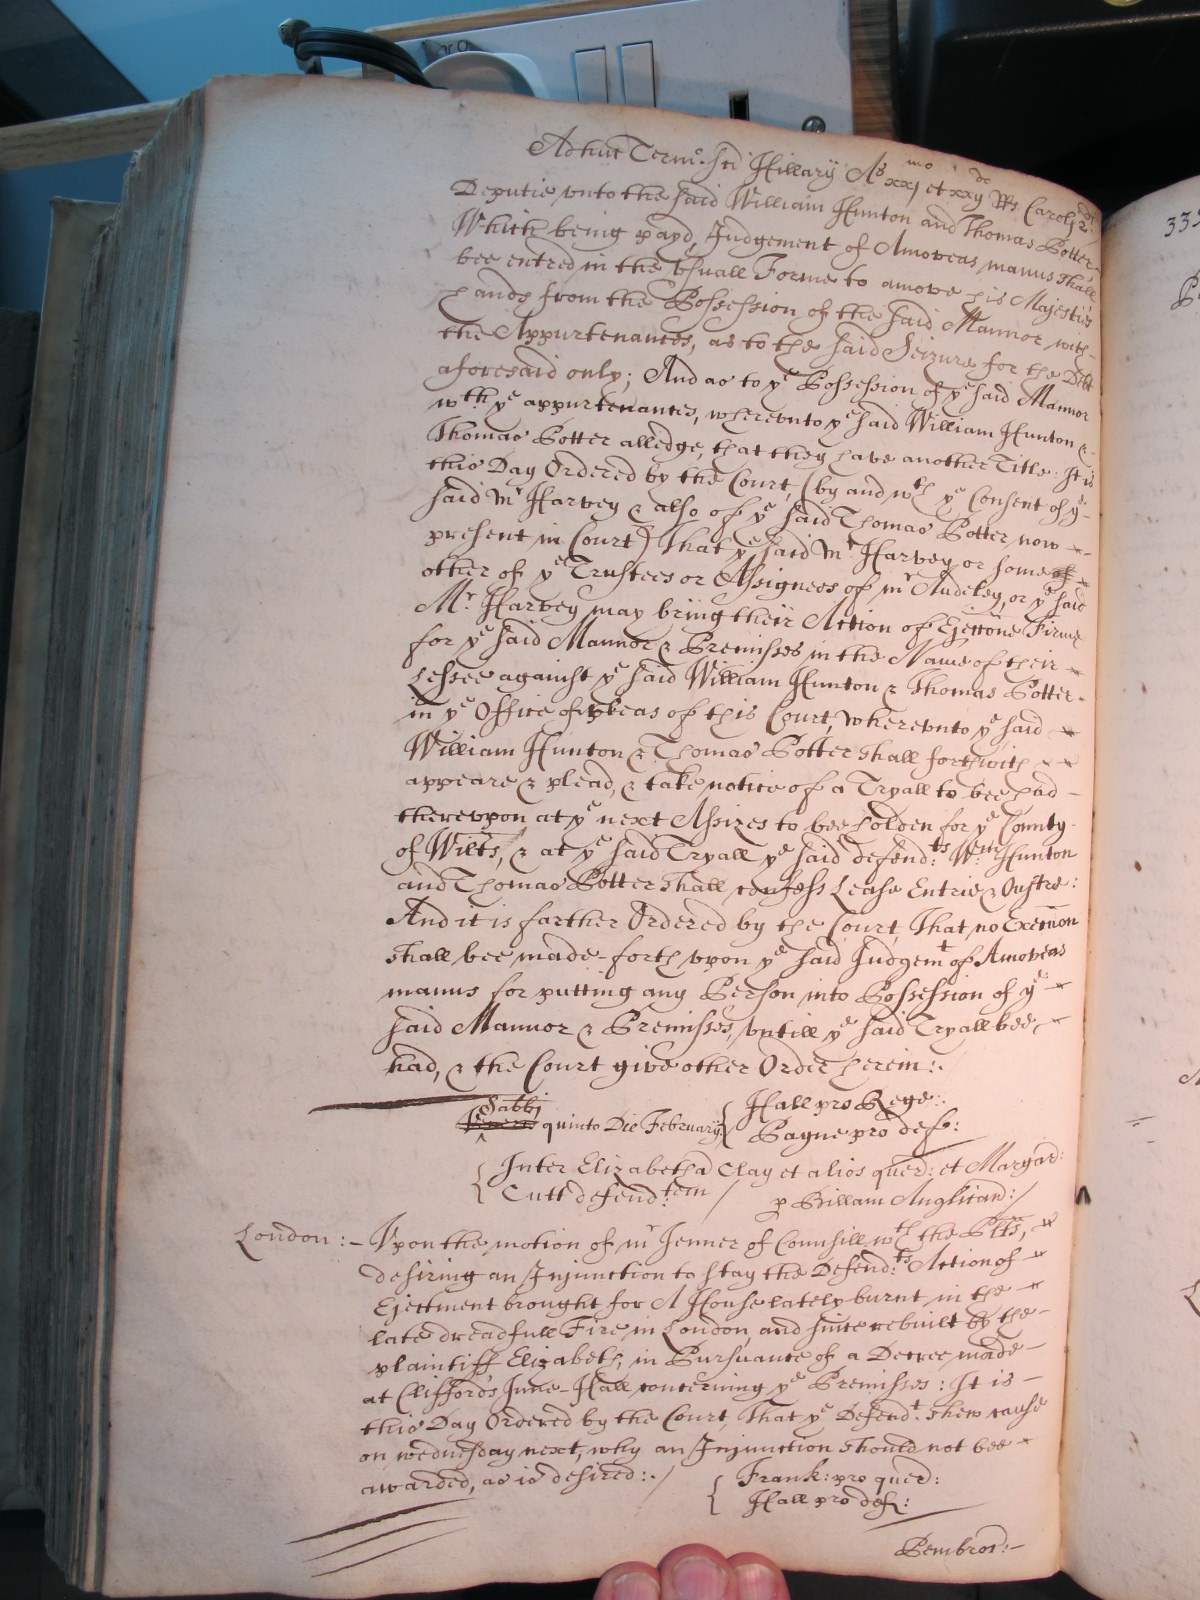 Adhuc Term:o Sci Hillarij Ao xxj mo et xxij do Rs Carolj 2di
Deputie vnto the said William Hunton and Thomas Potter
Which being payd, Judgement of Amoveas manus shall
bee entred in the Vsuall Forme to amove his Majesties
hands from the Possession of the said Mannor with
the Appurtenances, as to the said Seizure for the Debt
aforesaid only; And as to ye Possession of ye said Mannor
wth ye appurtenances, wherevnto ye said William Hunton &
Thomas Potter alledge, that they have another Title: It is
this Day Ordered by the Court, (by and wth ye Consent of ye
said Mr Harvey & also of ye said Thomas Potter now
present in Court) That ye said Mr Harvey or some of
other of ye Trustees or Assignees of mr Audeley, or ye said
Mr Harvey may bring their Action of Ejectione Firme
for ye said Mannor & Premisses in the Name of their
Lessee against ye said William Hunton & Thomas Potter
in ye Office of pleas of this Court, wherevnto ye said
William Hunton & Thomas Potter shall forthwith
appeare & plead, & take notice of a Tryall to bee had
therevpon at ye next Assizes to bee holden for ye County
of Wilts, & at ye said Tryall ye said defend:ts Wm Hunton
and Thomas Potter shall confess Lease Entrie & Oustre:
And it is farther Ordered by the Court, That no Execucion
shall bee made forth vpon ye said Judgemt of Amoveas
manus for putting any Person into Possession of ye
said Mannor & Premisses, vntill ye said Tryall bee
had, & the Court give other Order herein:.
Sabbi
Veneris quinto Die February { Hall pro Rege:.
Payne pro def:
{ Inter Elizabetha Clay et alios quer: et Margar:
Cutt defend:tem / p Billam Anglican:/
London:- Vpon the motion of mr Jenner of Counsill wth the Plts,
desiring an Injunction to stay the Defend:ts Action of
Ejectment brought for A House lately burnt in the
late dreadfull Fire in London, and since rebuilt by the
plaintiff Elizabeth, in Pursuance of a Decree made
at Cliffords Inne-Hall concerning ye Premisses: It is
this Day Ordered by the Court, That ye Defendt. shew cause
on wednesday next, why an Injunction should not bee
awarded, as is desired:./ { Frank: pro quer:
Hall pro def:
Pembror:-